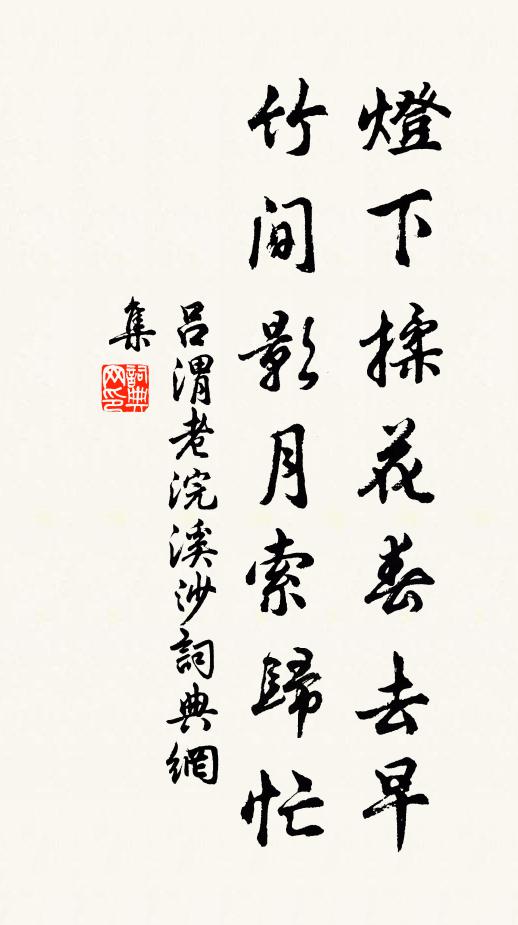 燈下揉花春去早
竹間影月索歸忙
呂渭老浣溪沙詞典網
集
詞典网印